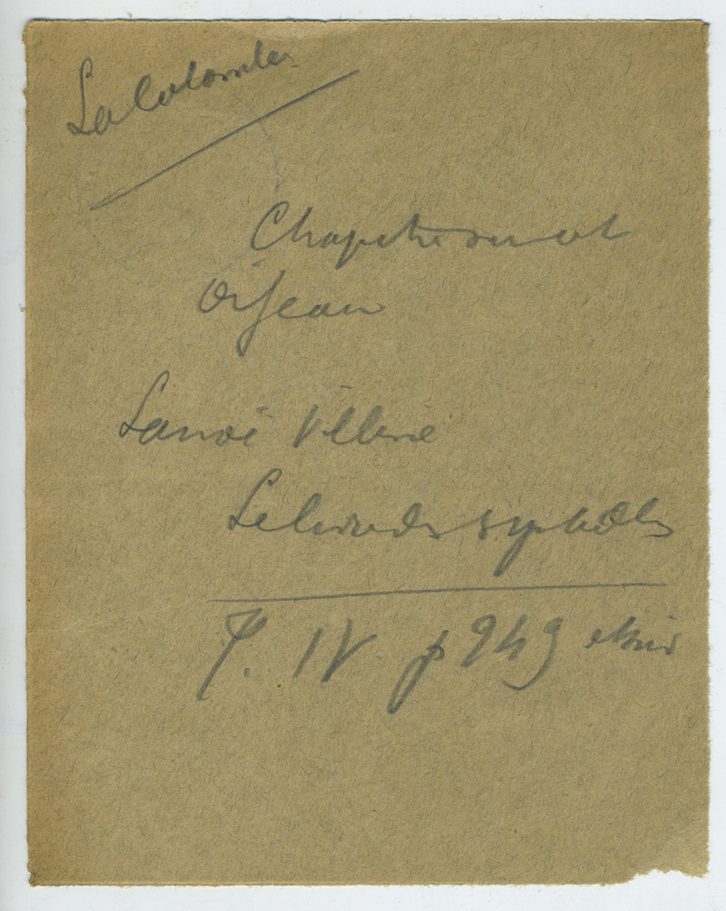 La Colombe
Chapitre sur cet
Oiseau
Lanoë Villène
Le livre des symboles
T. IV p 249 et suiv